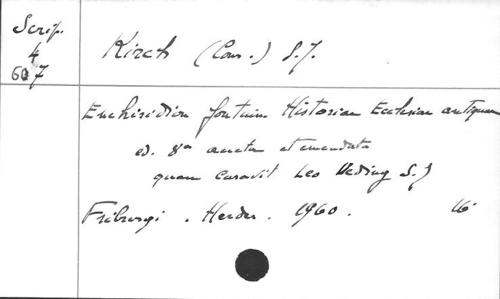 Scrip.
4
607
Kirch (Conr.) S.J.
Enchiridion fontium Historiae Ecclesiae antiquae
ed. 8a aucta et emendata
quam curavit Leo Ueding S.J
Friburgi. Herder. 1960.